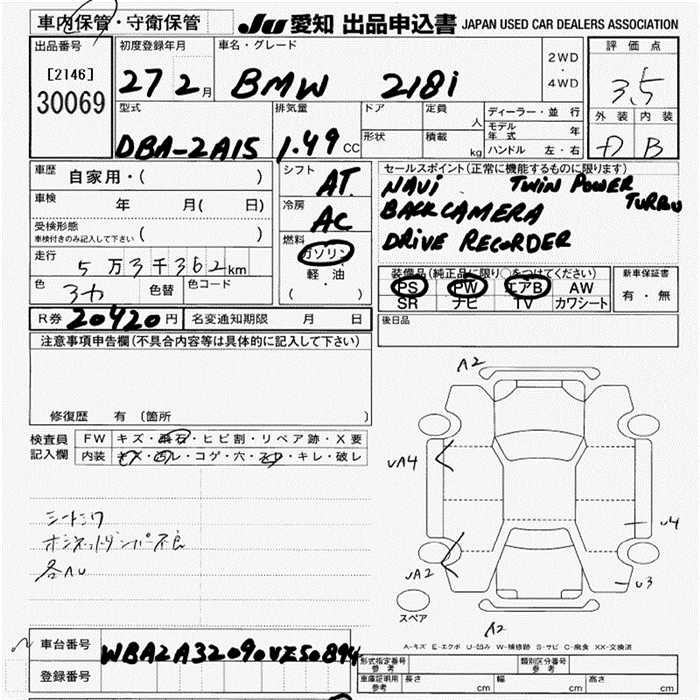 車内保管・守衛保管
JU 愛知 出品申込書 JAPAN USED CAR DEALERS ASSOCIATION
出品番号
[2146]
30069
初度登録年月
27 2月
車名・グレード
BMW 218i
2WD
・
4WD
評価点
3.5
外装 内装
D B
型式
DBA-2A15
排気量
1.49 CC
ドア
形状
定員 人
積載 kg
ディーラー・並行
モデル年式 年
ハンドル 左・右
車歴
自家用・( )
車検 年 月( 日)
受検形態
車検付きのみ記入して下さい ( )
走行
5万3千362km
色 色替 色コード
シフト
AT
冷房
AC
燃料
ガソリン
軽・油
( )
セールスポイント(正常に機能するものに限ります)
NAVi TWIN POWER TURBO
BACK CAMERA
DRIVE RECORDER
装備品(純正品に限り○をつけてください)
PS PW エアB AW
SR ナビ TV カワシート
新車保証書
有・無
R券 20420円 名変通知期限 月 日
後日品
注意事項申告欄(不具合内容等は具体的に記入して下さい)
修復歴 有 (箇所 )
検査員記入欄
FW キズ・飛石・ヒビ割・リペア跡・X要
内装 キズ・汚レ・コゲ・穴・スレ・キレ・破レ
シートシワ
ボンネットダンパー不良
各ヘU
A2
UA4
U4
UA2
U3
スペア
A2
A-キズ E-エクボ U-凹み W-補修跡 S-サビ C-腐食 XX-交換済
車台番号
WBA2A32090VE50894
登録番号
形式指定番号 参考
類別区分番号 参考
車庫証明用 参考 長さ cm 幅 cm 高さ cm